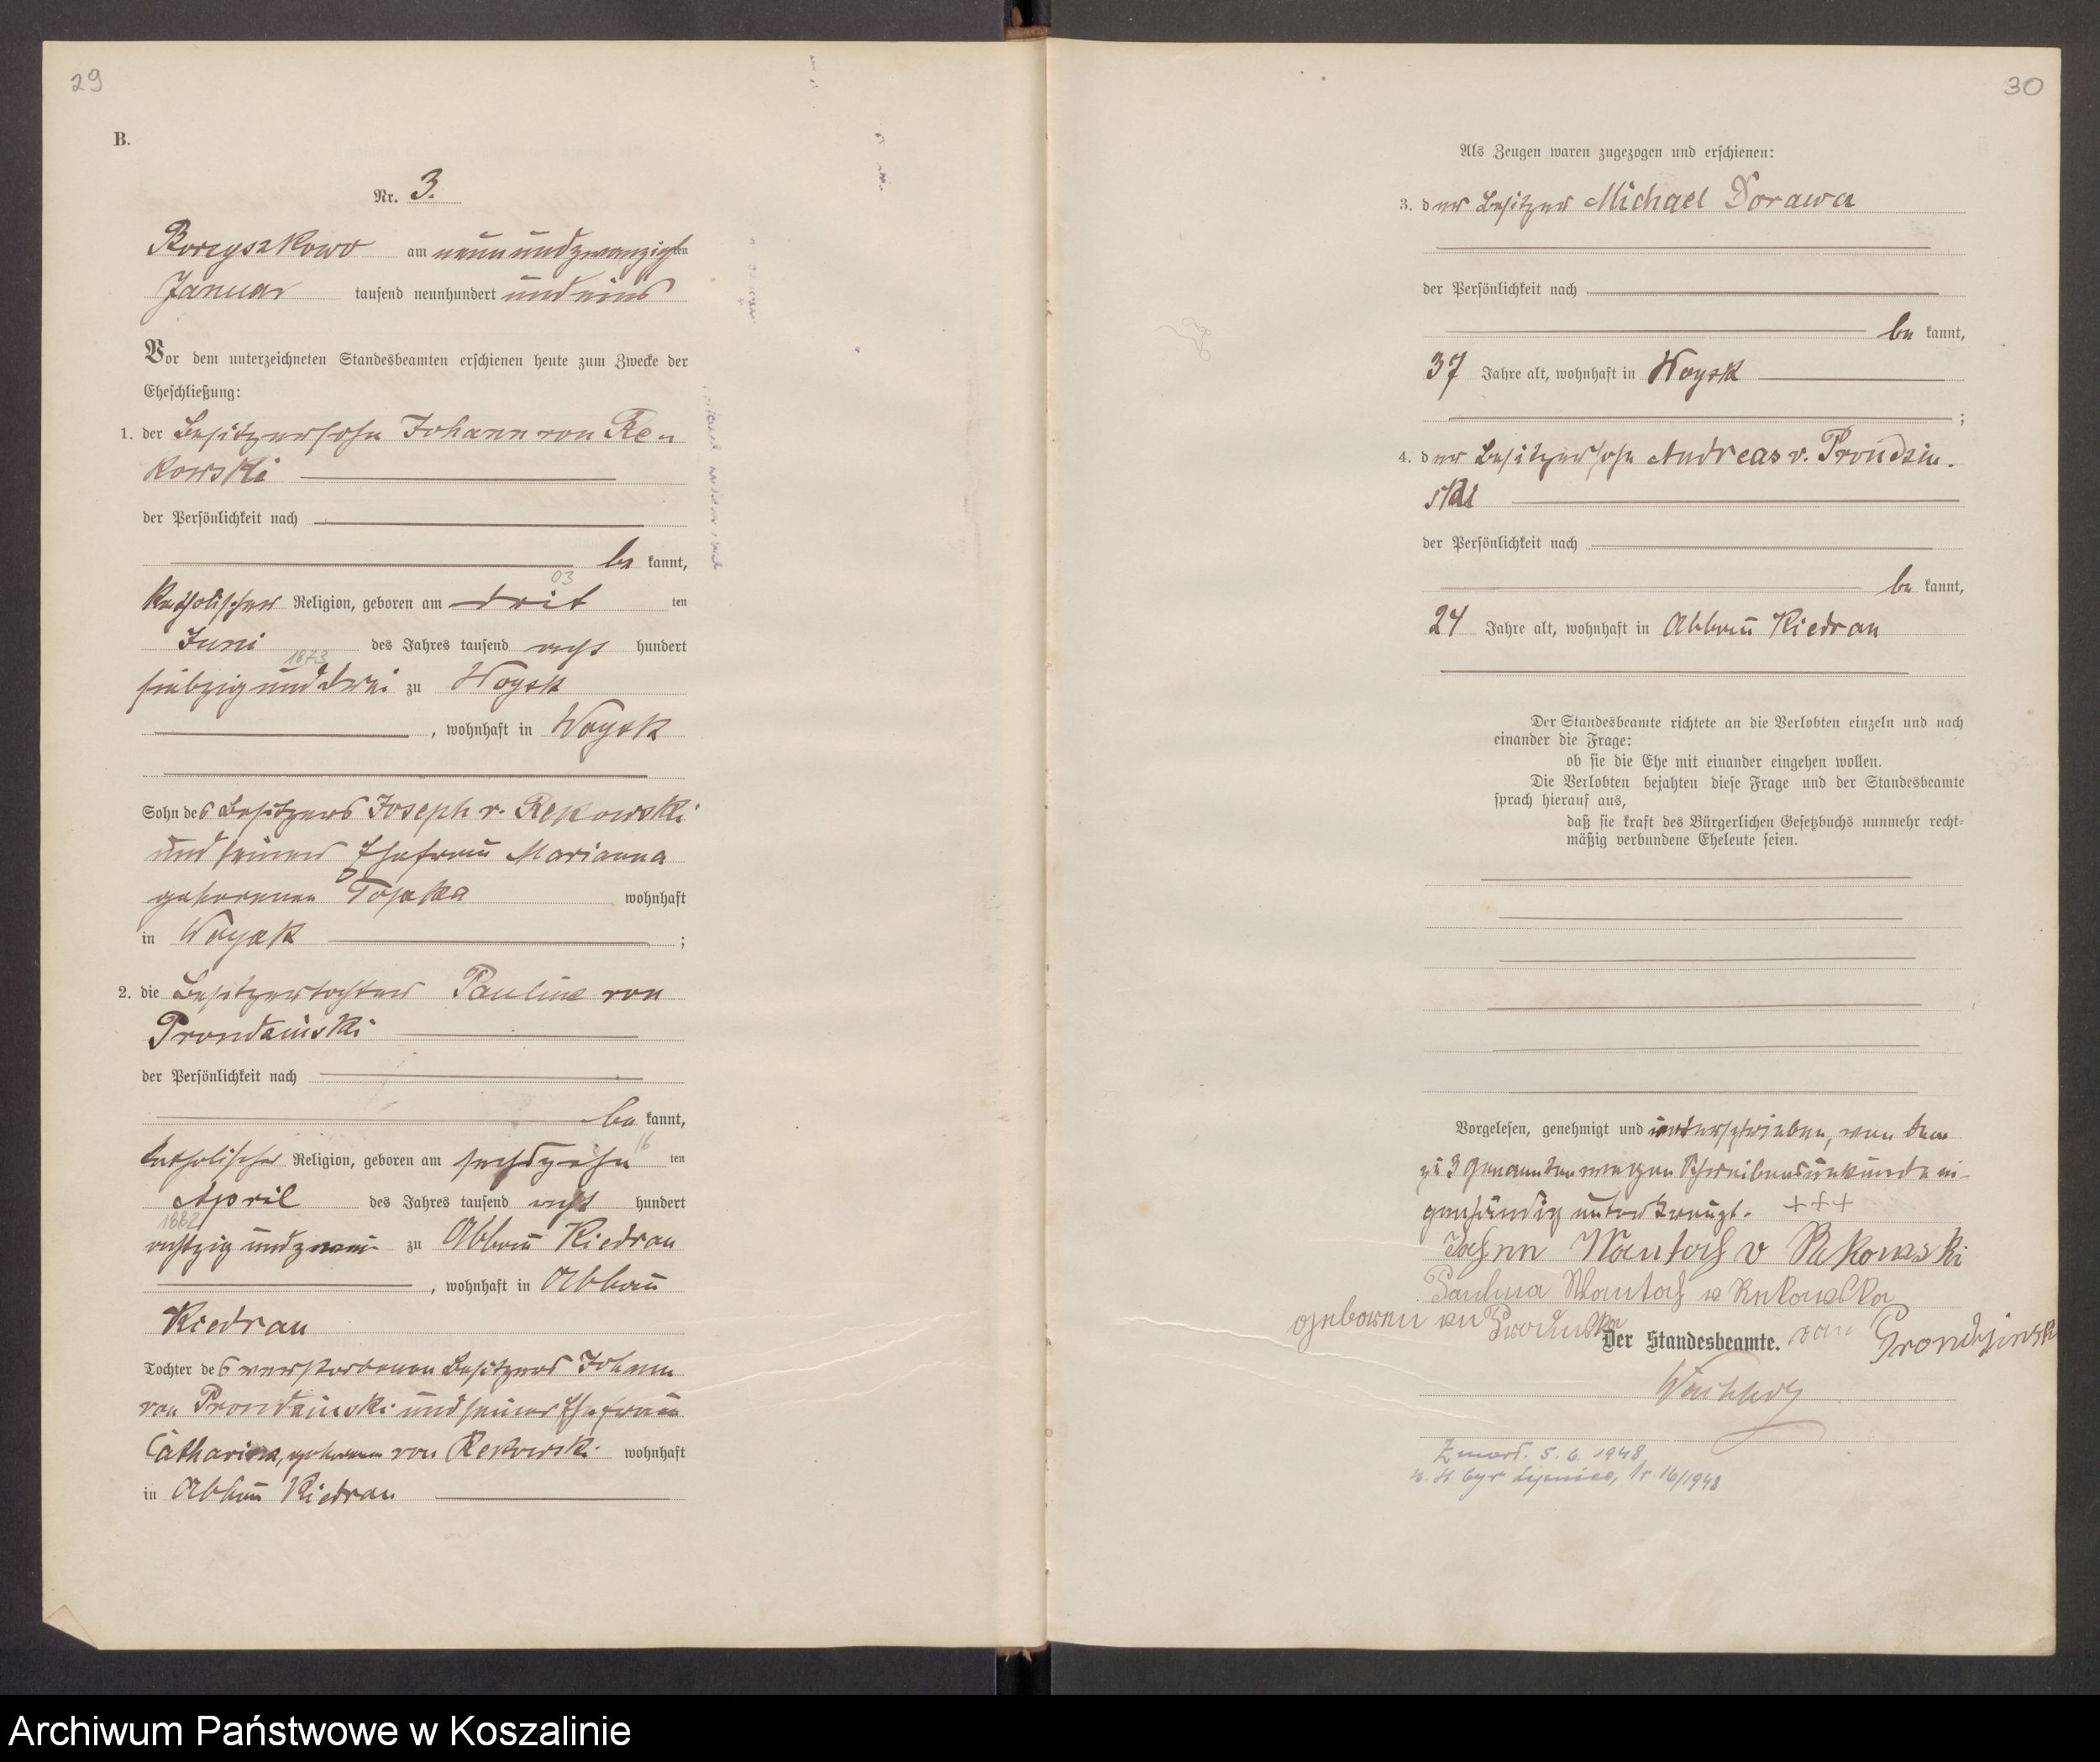 29
B.
Nr. 3.
Borcyszkowo am neunundzwanzigsten
Januar tausend neunhundert und eins
Vor dem unterzeichneten Standesbeamten erschienen heute zum Zwecke der
Eheschließung:
1. der Besitzersohn Johann von Re-
kowski
der Persönlichkeit nach
be kannt,
03
katholischer Religion, geboren am drit ten
Juni des Jahres tausend acht hundert
1873
siebzig und drei zu Woysk
, wohnhaft in Woysk
Sohn des Besitzers Joseph v. Rekowski
und seiner Ehefrau Marianna
geborenen wohnhaft
in Woysk ;
2. die Besitzertochter Pauline von
Prondzinski
der Persönlichkeit nach
be kannt,
16
katholischer Religion, geboren am sechszehn ten
April des Jahres tausend acht hundert
1882
achtzig und zwei zu Abbau Kiedrau
, wohnhaft in Abbau
Kiedrau
Tochter des verstorbenen Besitzers Johann
von Prondzinski und seiner Ehefrau
Catharina, geborenen von Rekowski wohnhaft
in Abbau Kiedrau
30
Als Zeugen waren zugezogen und erschienen:
3. der Besitzer Michael Dorawa
der Persönlichkeit nach
be kannt,
37 Jahre alt, wohnhaft in Woysk
;
4. der Besitzersohn Andreas v. Prondzin-
ski
der Persönlichkeit nach
be kannt,
24 Jahre alt, wohnhaft in Abbau Kiedrau
Der Standesbeamte richtete an die Verlobten einzeln und nach
einander die Frage:
ob sie die Ehe mit einander eingehen wollen.
Die Verlobten bejahten diese Frage und der Standesbeamte
sprach hierauf aus,
daß sie kraft des Bürgerlichen Gesetzbuchs nunmehr recht-
mäßig verbundene Eheleute seien.
Vorgelesen, genehmigt und unterschrieben, von dem
zu 3 Genannten wegen Schreibensunkunde ei-
genhändig unterkreuzt. +++
Johnn Wantoch v Rekowski
Paulina Wantoch v Rekowska
geboren von
Der Standesbeamte. von Prondzinski
Zmarł. 5. 6. 1948
Lipnica, Nr. 16/1948
Archiwum Państwowe w Koszalinie